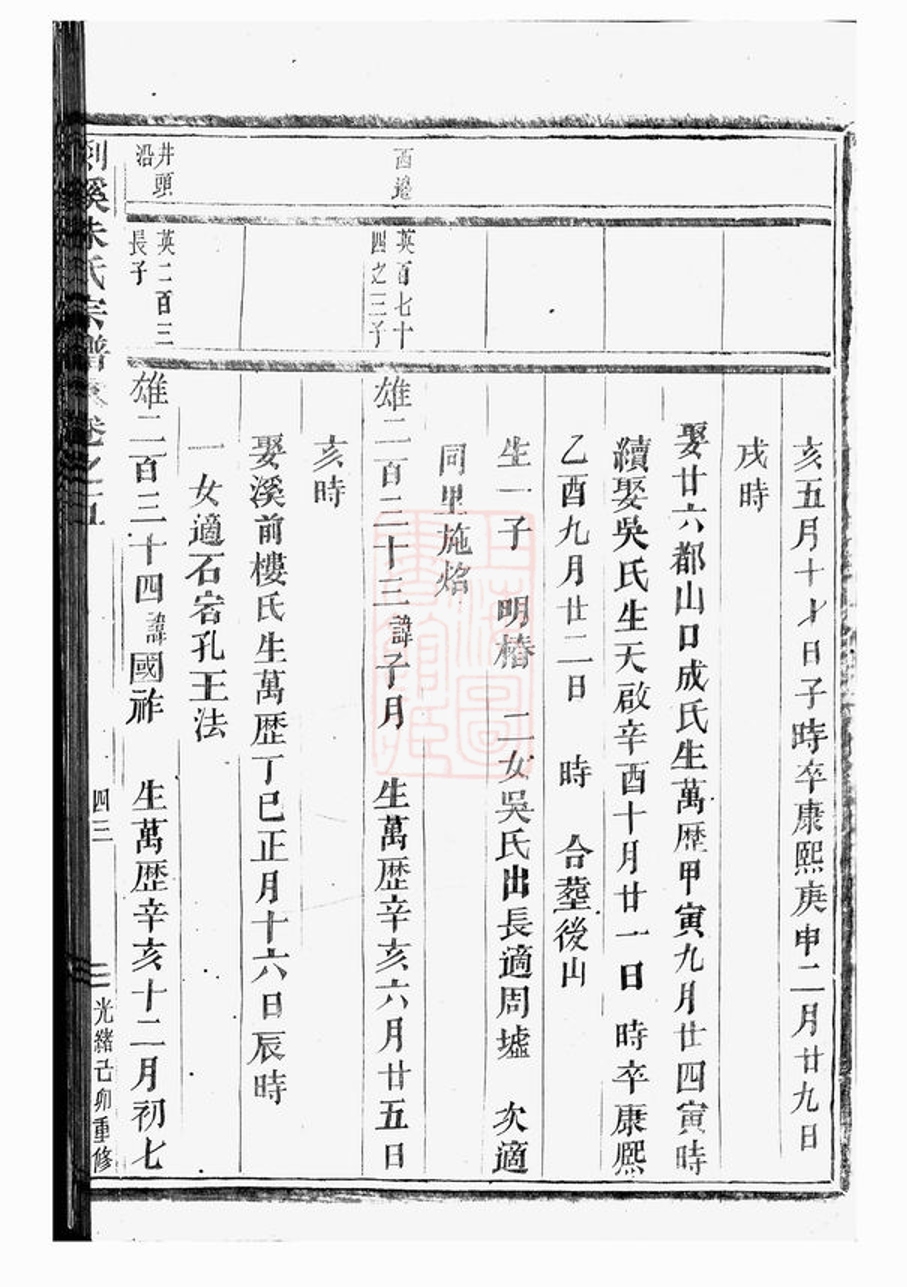 亥五月十七日子時卒康熙庚申二月廿九日
戌時
娶廿六都山口成氏生萬歷甲寅九月廿四寅時
續娶吳氏生天啟辛酉十月廿一日 時卒康熙
乙酉九月廿二日 時 合塟後山
生一子 明椿 二女吳氏出長適周墟 次適
同里施焰
西邊
英百七十
四之三子
雄二百三十三諱子月 生萬歷辛亥六月廿五日
亥時
娶溪前樓氏生萬歷丁巳正月十六日辰時
一女適石宕孔王法
井頭
沿
英二百三
長子
雄二百三十四諱國祚 生萬歷辛亥十二月初七
剡溪朱氏宗譜 卷之五
四三
光緒己卯重修